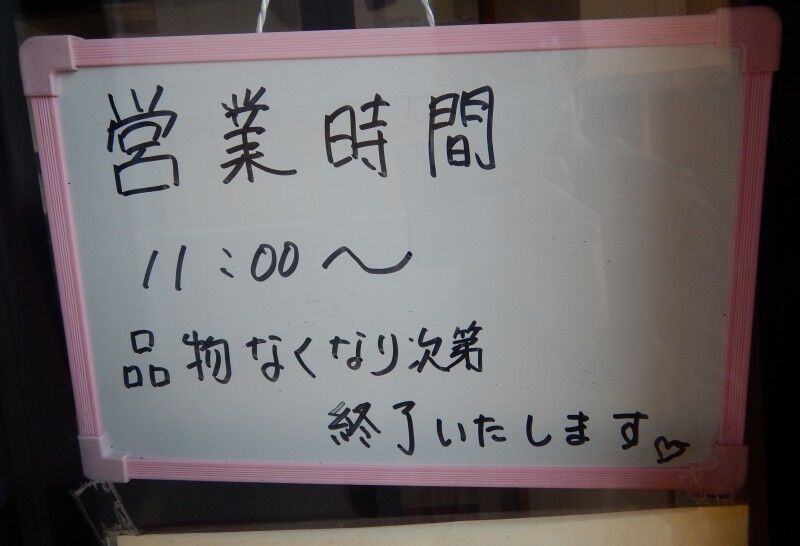 営業時間
11:00〜
品物なくなり次第
終了いたします♡